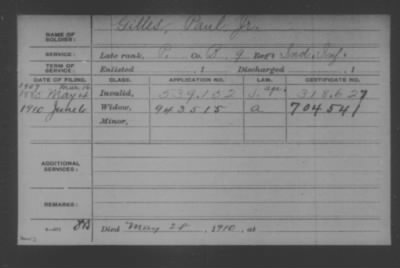 NAME OF SOLDIER: Gilles, Paul Jr.
SERVICE: Late rank, P. Co. 9 Reg't Ind. Inf.
TERM OF SERVICE: Enlisted , 1 Discharged , 1
DATE OF FILING. CLASS. APPLICATION NO. LAW. CERTIFICATE NO.
1907 Mar. 16
May 4 Invalid, 539.102 318.627
1910 June 6 Widow, 943515 a 704541
Minor,
ADDITIONAL SERVICES:
REMARKS:
Died May 28, 1910, at